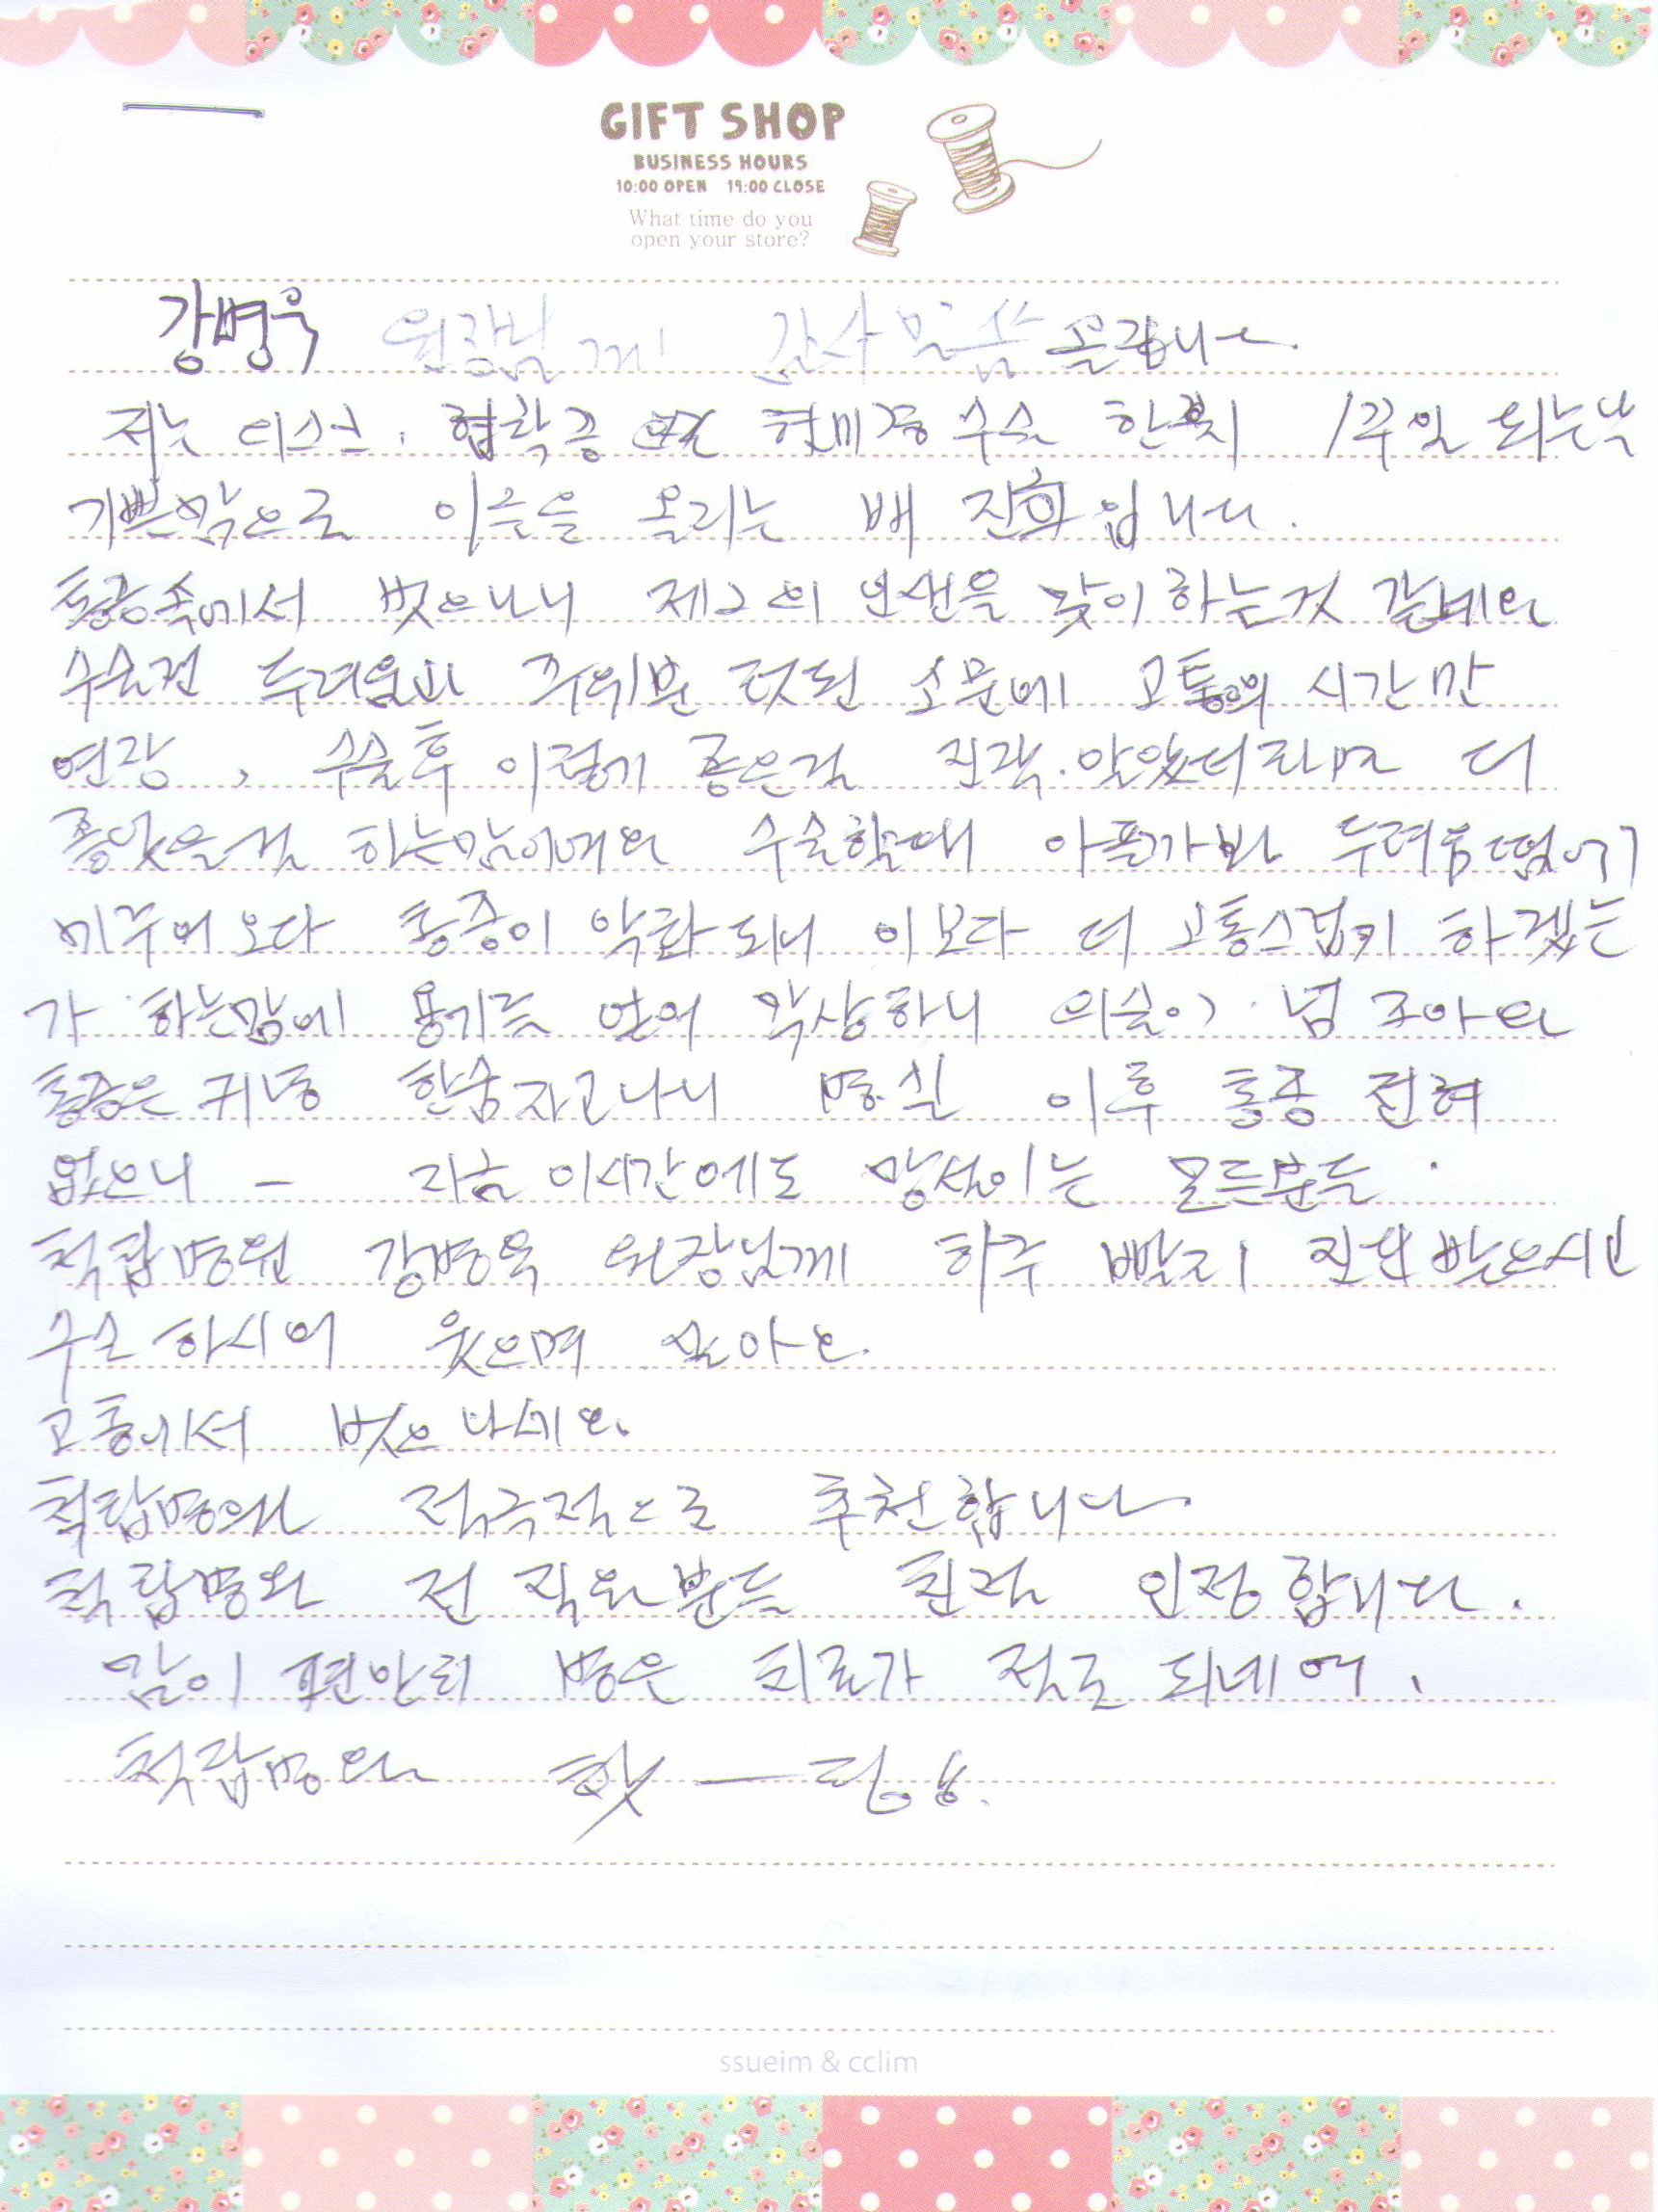 GIFT SHOP
BUSINESS HOURS
10:00 OPEN 19:00 CLOSE
What time do you
open your store?
강병욱 원장님께 감사 말씀 올립니다.
저는 디스크. 협착증 현미경 수술 한지 1주일 되는날
기쁜맘으로 이글을 올리는 배 진화입니다.
통증속에서 벗으나니 제2의 인생을 맞이하는것 같네요
수술전 두려움과 주위분 헛된 소문에 고통의 시간만
연장, 수술후 이렇게 좋은걸 진작.알았더라면 더
좋았을걸 하는맘이에요 수술할때 아플가바 두려움땜에
미루어오다 통증이 악화되니 이보다 더 고통스럽키 하겠는
가 하는맘에 용기를 얻어 막상하니 의술이 넘 조아요
통증은 한숨자고나니 병실 이후 통증 전혀
없으니 - 지금 이시간에도 망설이는 모든분들.
척탑병원 강병욱 원장님께 하루 빨리 진료 받으시고
수술 하시어 웃으며 살아요.
고통에서 벗으나세요.
척탑병원 적극적으로 추천합니다.
척탑병원 전 직원분들 친절 인정합니다.
맘이 편안희 병은 치료가 절로 되네여.
척탑병원 홧ㅡ팅
ssueim & cclim